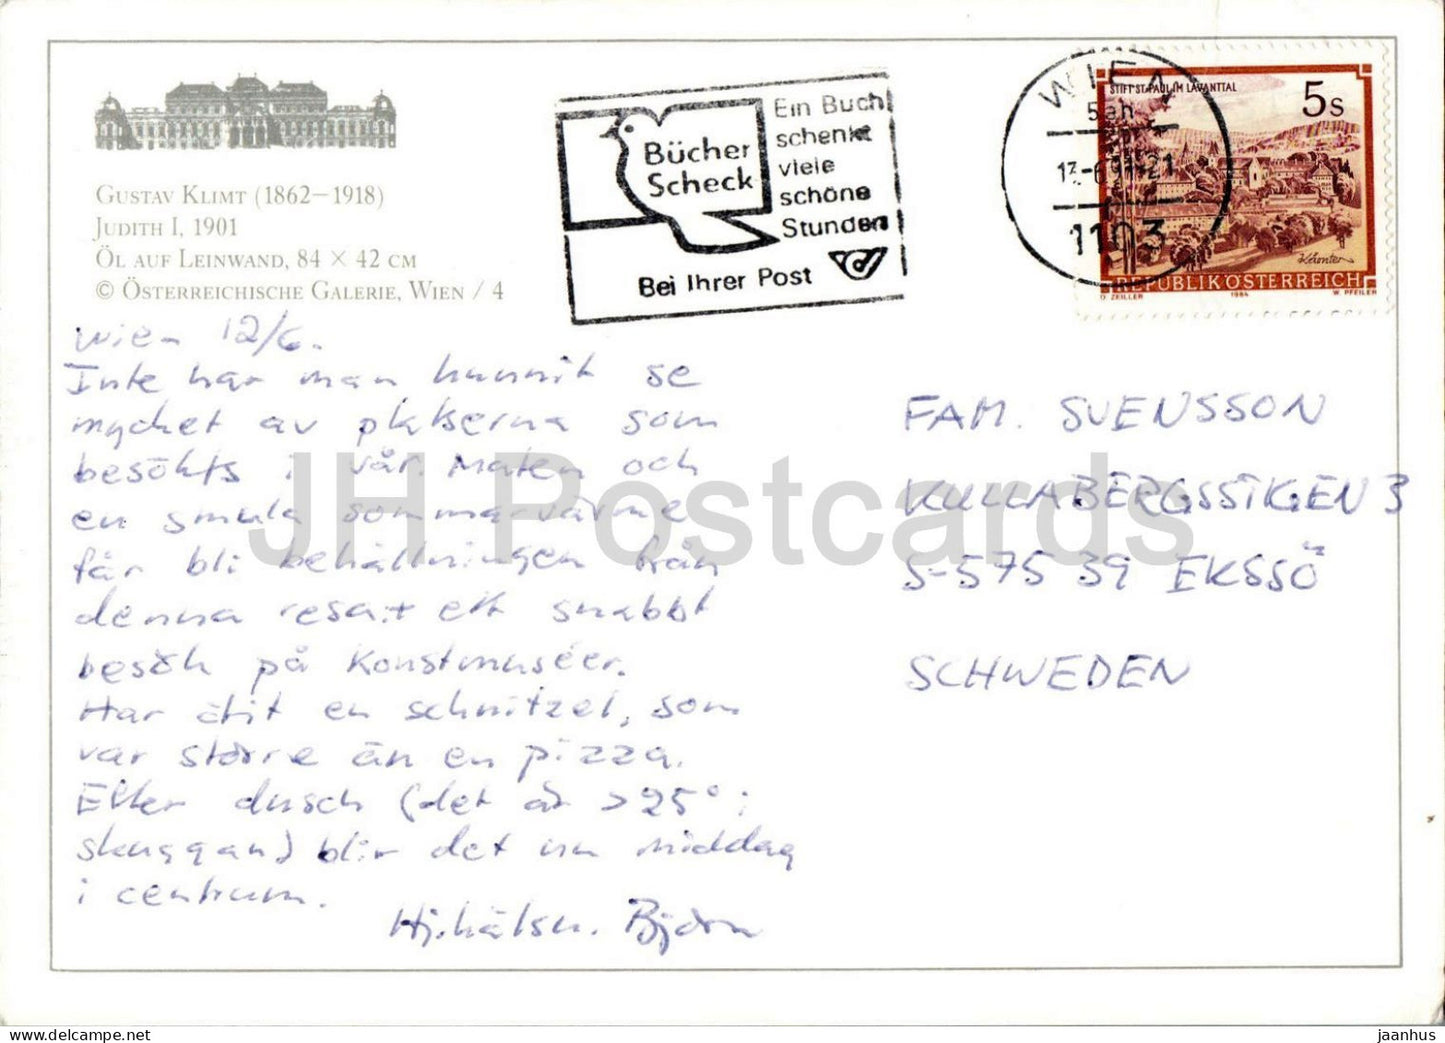 GUSTAV KLIMT (1862–1918)
JUDITH I, 1901
ÖL AUF LEINWAND, 84 × 42 CM
© ÖSTERREICHISCHE GALERIE, WIEN / 4
Bücher
Scheck
Ein Buch
schenkt
viele
schöne
Stunden
Bei Ihrer Post
WIEN
1103
STIFT ST. PAUL IM LAVANTTAL
5s
REPUBLIK ÖSTERREICH
O. ZEILLER 1984 W. PFEILER
Wien 12/6.
Inte har man hunnit se
mycket av platserna som
besökts i vår. Maten och
en smula sommarvärme
får bli behållningen från
denna resa + ett snabbt
besök på Konstmuséer.
Har ätit en schnitzel, som
var större än en pizza.
Efter dusch (det är >25° i
skuggan) blir det nu middag
i centrum.
Hj.hälsn. Björn
FAM. SVENSSON
KULLABERGSSTIGEN 3
S-575 39 EKSJÖ
SCHWEDEN
JH Postcards
www.delcampe.net
jaanhus